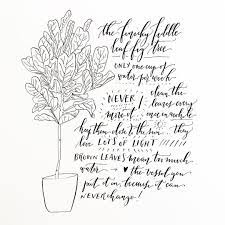 the family fiddle
leaf fig tree
ONLY one cup of
water per week
NEVER! clean the
leaves every
move it once in while
keep them close to the sun they
live LOTS of LIGHT!!!
BROWN LEAVES mean too much
water. ♥ the vessel you
put it in, because it can
NEVER change!